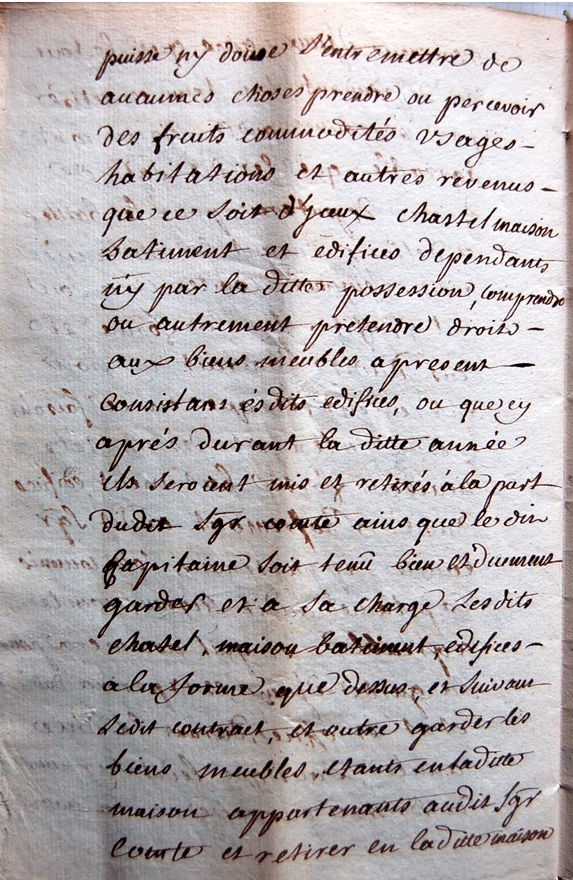 puisse ny doive s'entremettre de
aucunnes choses prendre ou percevoir
des fruits commodités usages -
habitations et autres revenus -
que ce soit d'yceux chastel maison
batiment et edifices dependants
n'y par la ditte possession, comprendre
ou autrement pretendre droits -
aux biens meubles apresent -
consistans ésdits edifices, ou que cy
aprés durant la ditte année
ils seroient mis et retirés à la part
dudit Sgr comte ains que le dit
Capitaine soit tenû bien et duement
garder et a sa charge lesdits
chatel, maison batiment, edifices -
a la forme que dessus, et suivant
ledit contract, et outre garder les
biens meubles, etants en ladite
maison appartenants audit Sgr
Comte et retirer en laditte maison